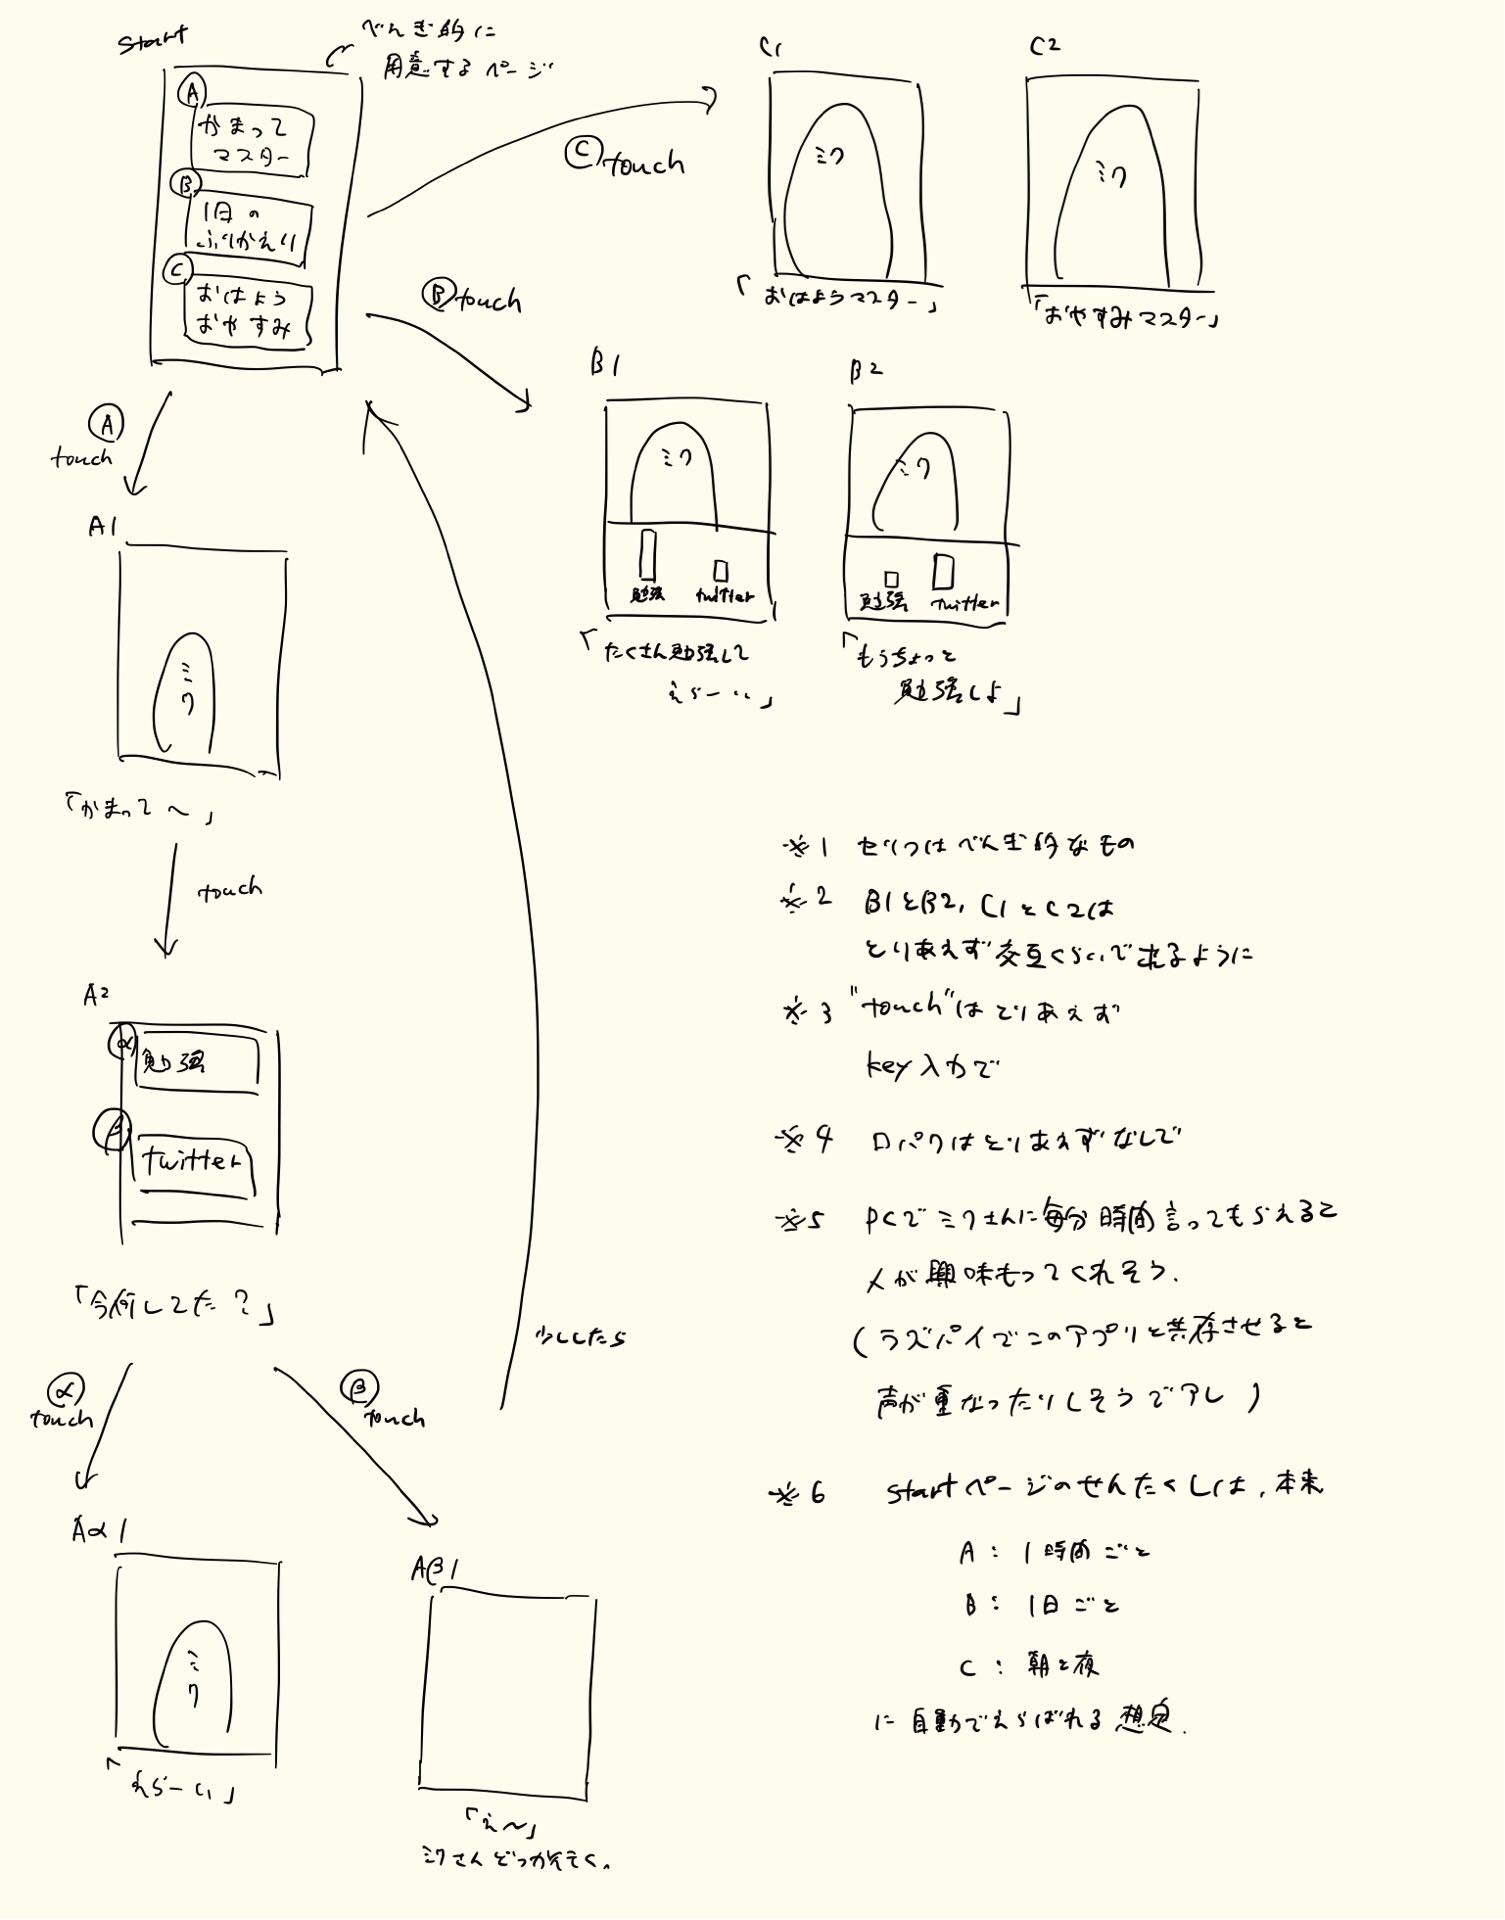 Start
べんぎ的に
用意するページ
A
かまって
マスター
B
1日の
ふりかえり
C
おはよう
おやすみ
C touch
C1
ミク
「おはようマスター」
C2
ミク
「おやすみマスター」
B touch
B1
ミク
勉強 twitter
「たくさん勉強して
えらーい」
B2
ミク
勉強 twitter
「もうちょっと
勉強しよ」
A
touch
A1
ミク
「かまって〜」
touch
A2
α
勉強
β
twitter
「今何してた?」
少ししたら
α
touch
β
touch
Aα1
ミク
「えらーい」
Aβ1
「え〜」
ミクさんどっかいく。
※1 セリフはべんぎ的なもの
※2 B1とB2, C1とC2は
とりあえず交互くらいで出るように
※3 "touch"はとりあえず
key入力で
※4 口パクはとりあえずなしで
※5 PCでミクさんに毎分時間言ってもらえると
人が興味もってくれそう.
(ラズパイでこのアプリと共存させると
声が重なったりしそうでアレ)
※6 startページのせんたくしは, 本来
A: 1時間ごと
B: 1日ごと
C: 朝と夜
に自動でえらばれる想定.